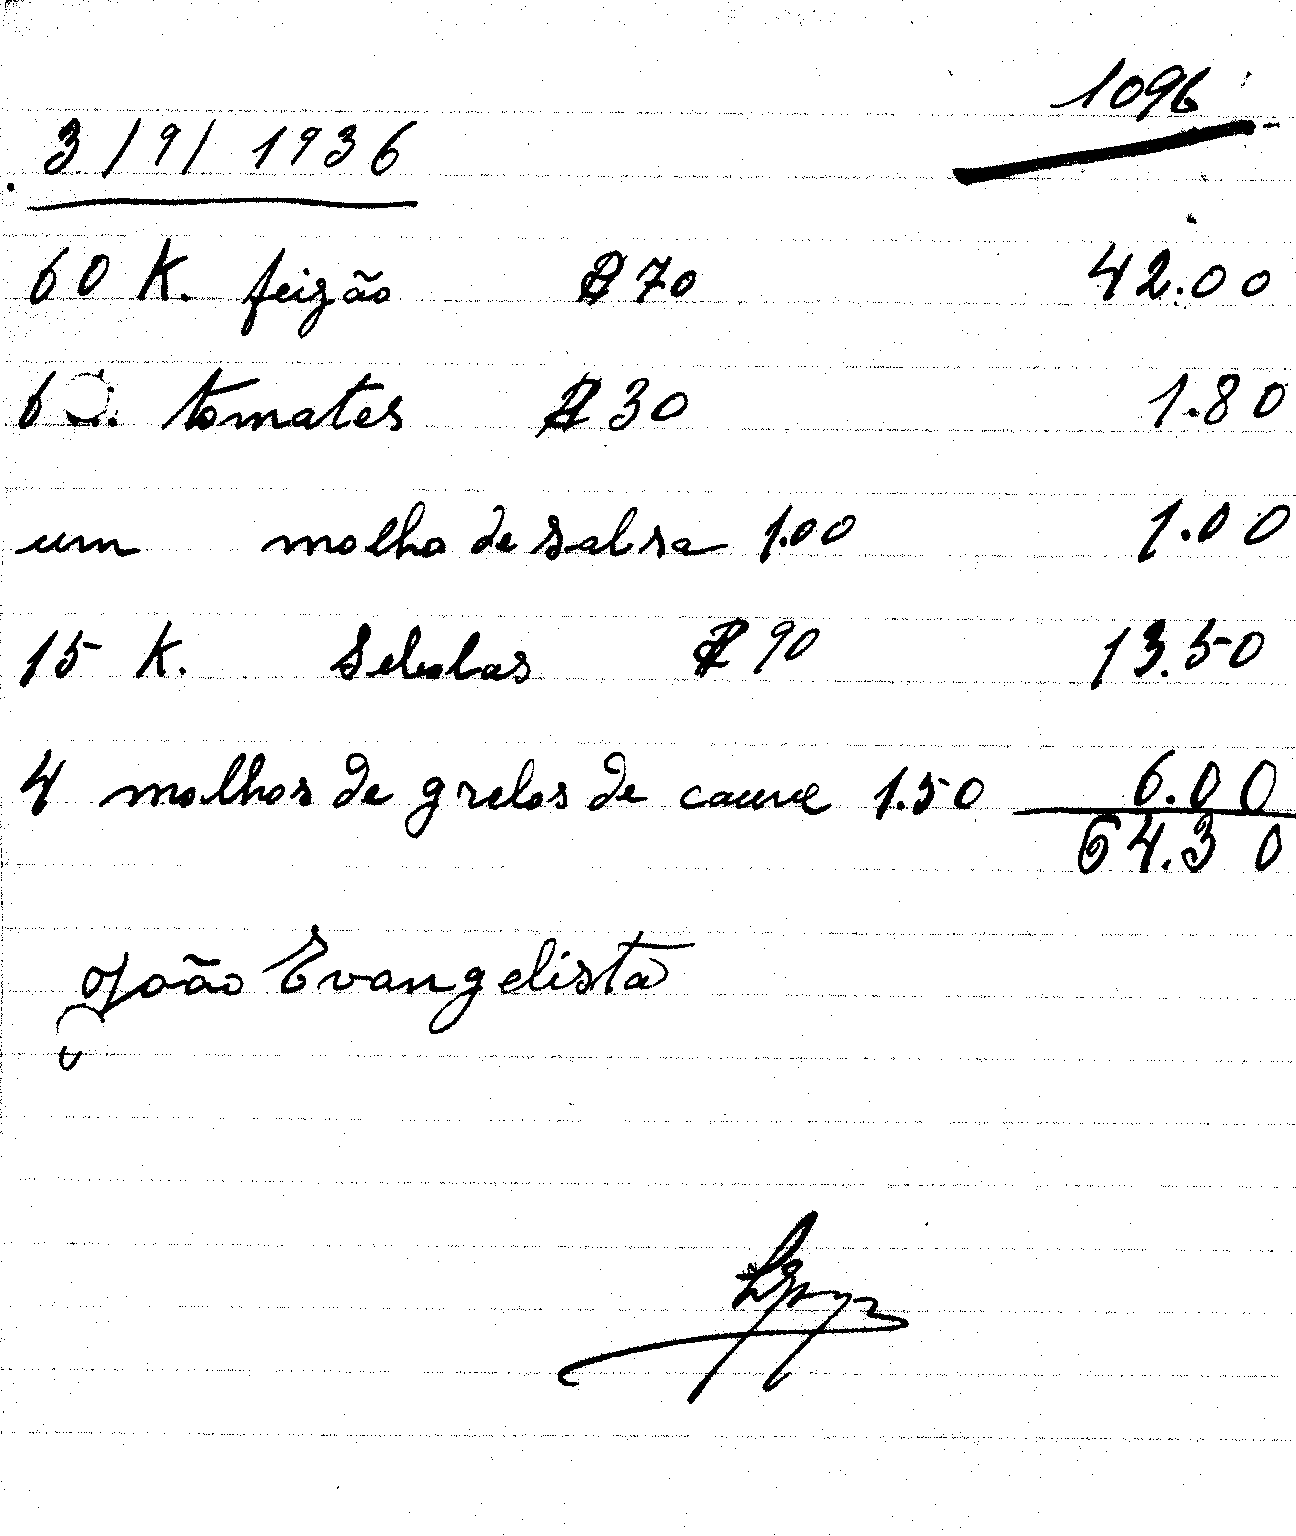 1096
3/9/1936
60 K. feizão $70 42.00
6 . tomates $30 1.80
um molho de salsa 1.00 1.00
15 K. Sebolas $90 13.50
4 molhos de grelos de couve 1.50 6.00
64.30
João Evangelista